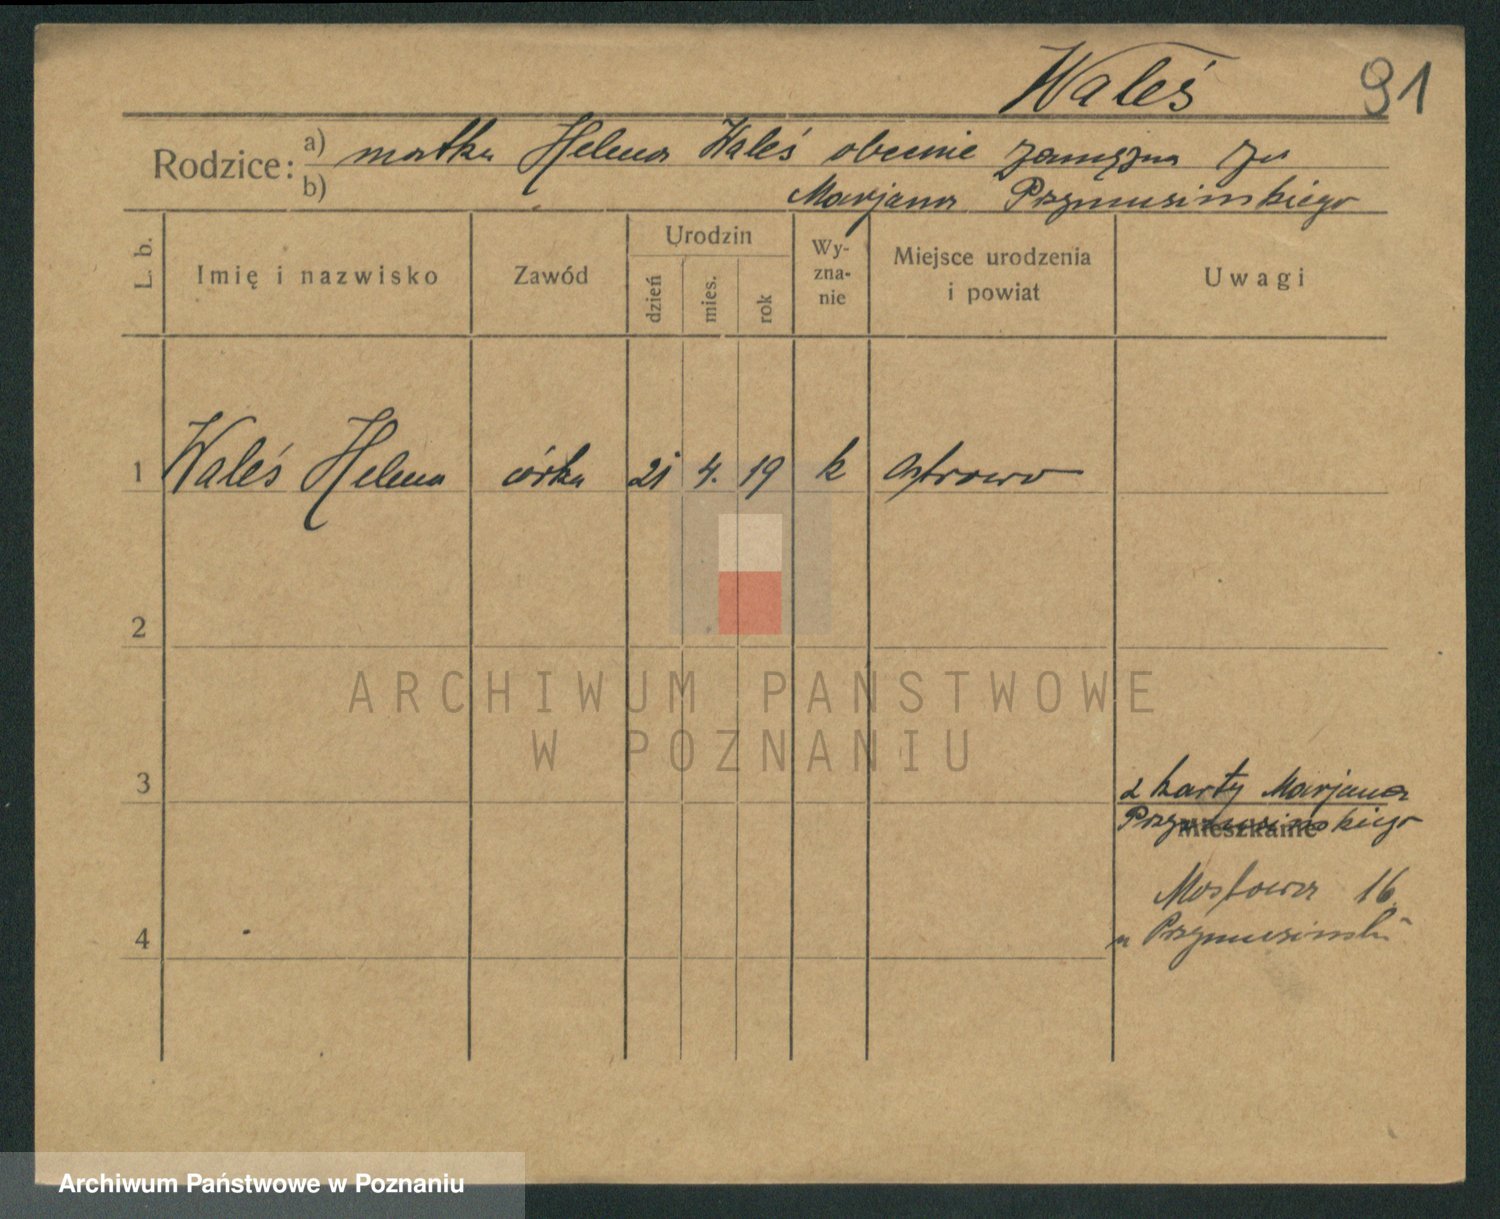 Waleś 91
Rodzice: a) matka Helena Waleś obecnie zamężna za
b) Marjana Przymusimskiego
L. b.
Imię i nazwisko
Zawód
Urodzin
dzień
mies.
rok
Wy-
zna-
nie
Miejsce urodzenia
i powiat
Uwagi
1 Waleś Helena córka 21 4. 19 k Ostrowo
2
ARCHIWUM PAŃSTWOWE
W POZNANIU
3
z karty Marjana
Przymusimskiego
Mieszkanie
Mostowa 16
4
u Przymusimsk
Archiwum Państwowe w Poznaniu